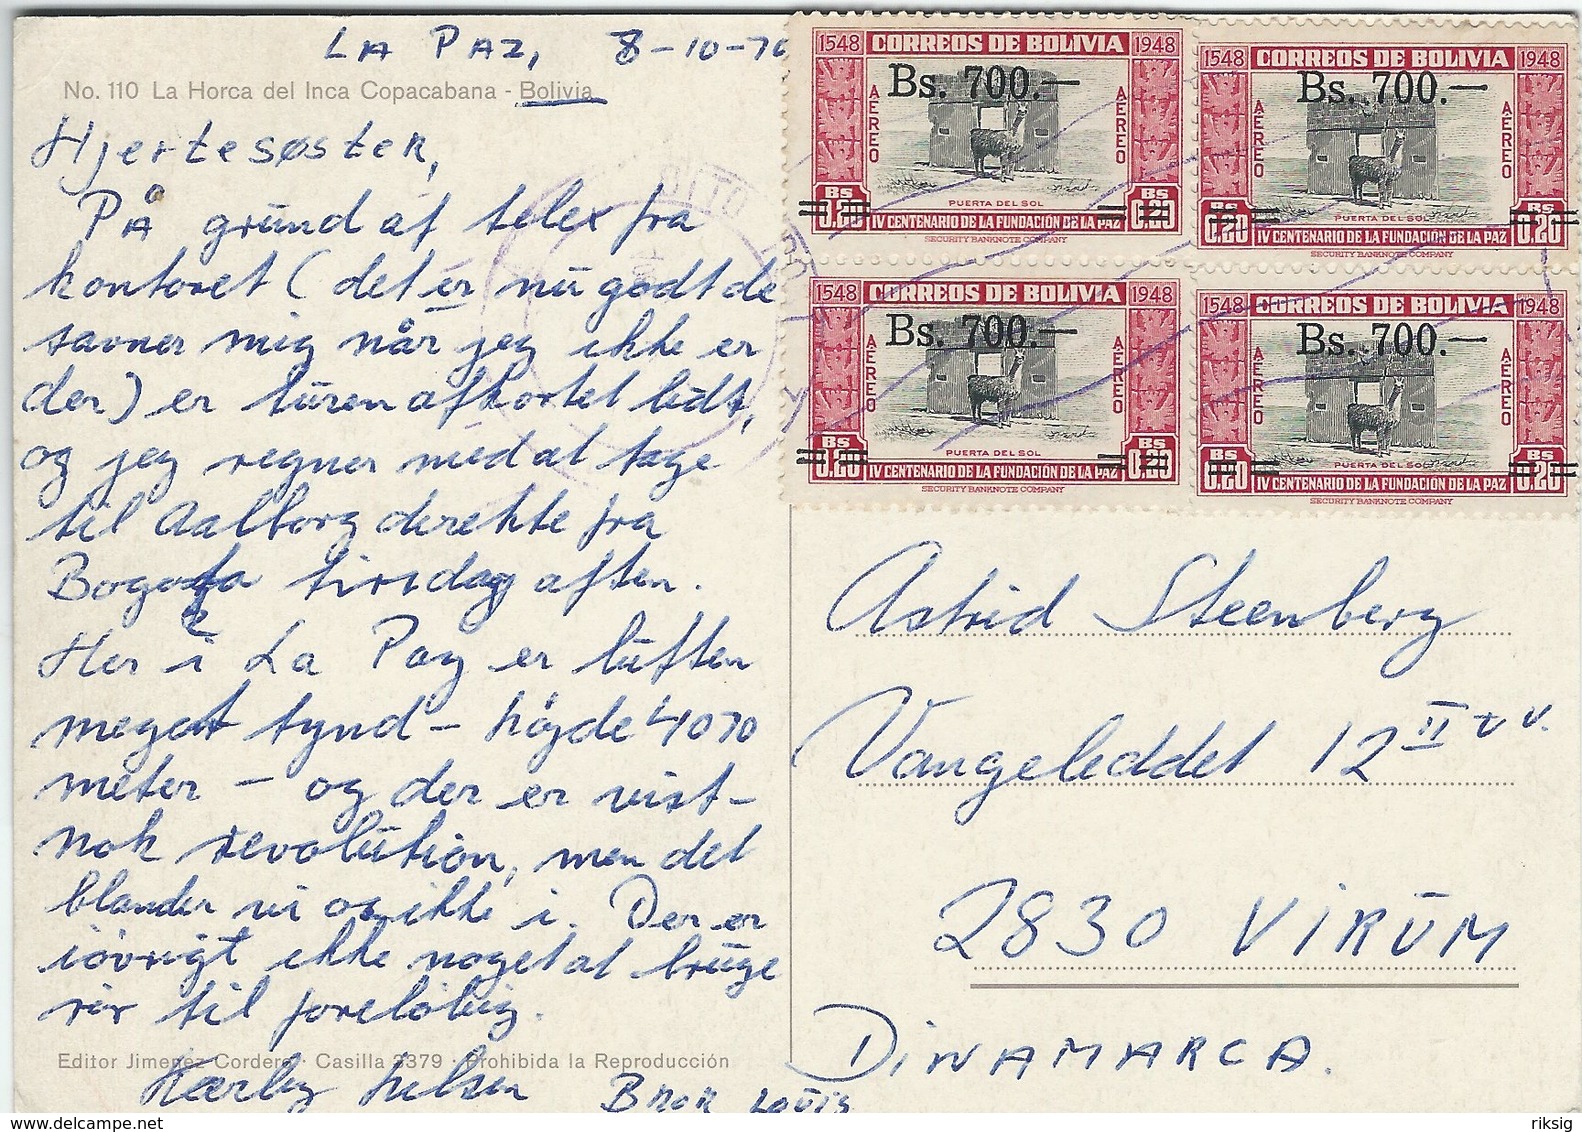 LA PAZ, 8-10-70
No. 110 La Horca del Inca Copacabana - Bolivia
Hjertesøster,
PÅ grund af telex fra
kontoret (det er nu godt de
savner mig når jeg ikke er
der) er turen afkortet lidt,
og jeg regner med at tage
til Aalborg direkte fra
Bogota tirsdag aften.
Her i La Paz er luften
meget tynd - højde 4070
meter - og der er vist-
nok revolution, men det
blander vi os ikke i. Der er
iøvrigt ikke noget at bruge
rør til foreløbig.
Editor Jimenez Cordero · Casilla 2379 · Prohibida la Reproducción
Kærlig hilsen
Bror Louis
1548 CORREOS DE BOLIVIA 1948
Bs. 700.—
AEREO
AEREO
PUERTA DEL SOL
Bs 0.20 IV CENTENARIO DE LA FUNDACIÓN DE LA PAZ Bs 0.20
SECURITY BANKNOTE COMPANY
1548 CORREOS DE BOLIVIA 1948
Bs. 700.—
AEREO
AEREO
PUERTA DEL SOL
Bs 0.20 IV CENTENARIO DE LA FUNDACIÓN DE LA PAZ Bs 0.20
SECURITY BANKNOTE COMPANY
1548 CORREOS DE BOLIVIA 1948
Bs. 700.—
AEREO
AEREO
PUERTA DEL SOL
Bs 0.20 IV CENTENARIO DE LA FUNDACIÓN DE LA PAZ Bs 0.20
SECURITY BANKNOTE COMPANY
1548 CORREOS DE BOLIVIA 1948
Bs. 700.—
AEREO
AEREO
PUERTA DEL SOL
Bs 0.20 IV CENTENARIO DE LA FUNDACIÓN DE LA PAZ Bs 0.20
SECURITY BANKNOTE COMPANY
Astrid Steenberg
Vangeleddet 12 II tv.
2830 VIRUM
DINAMARCA.
From www.delcampe.net
riksig